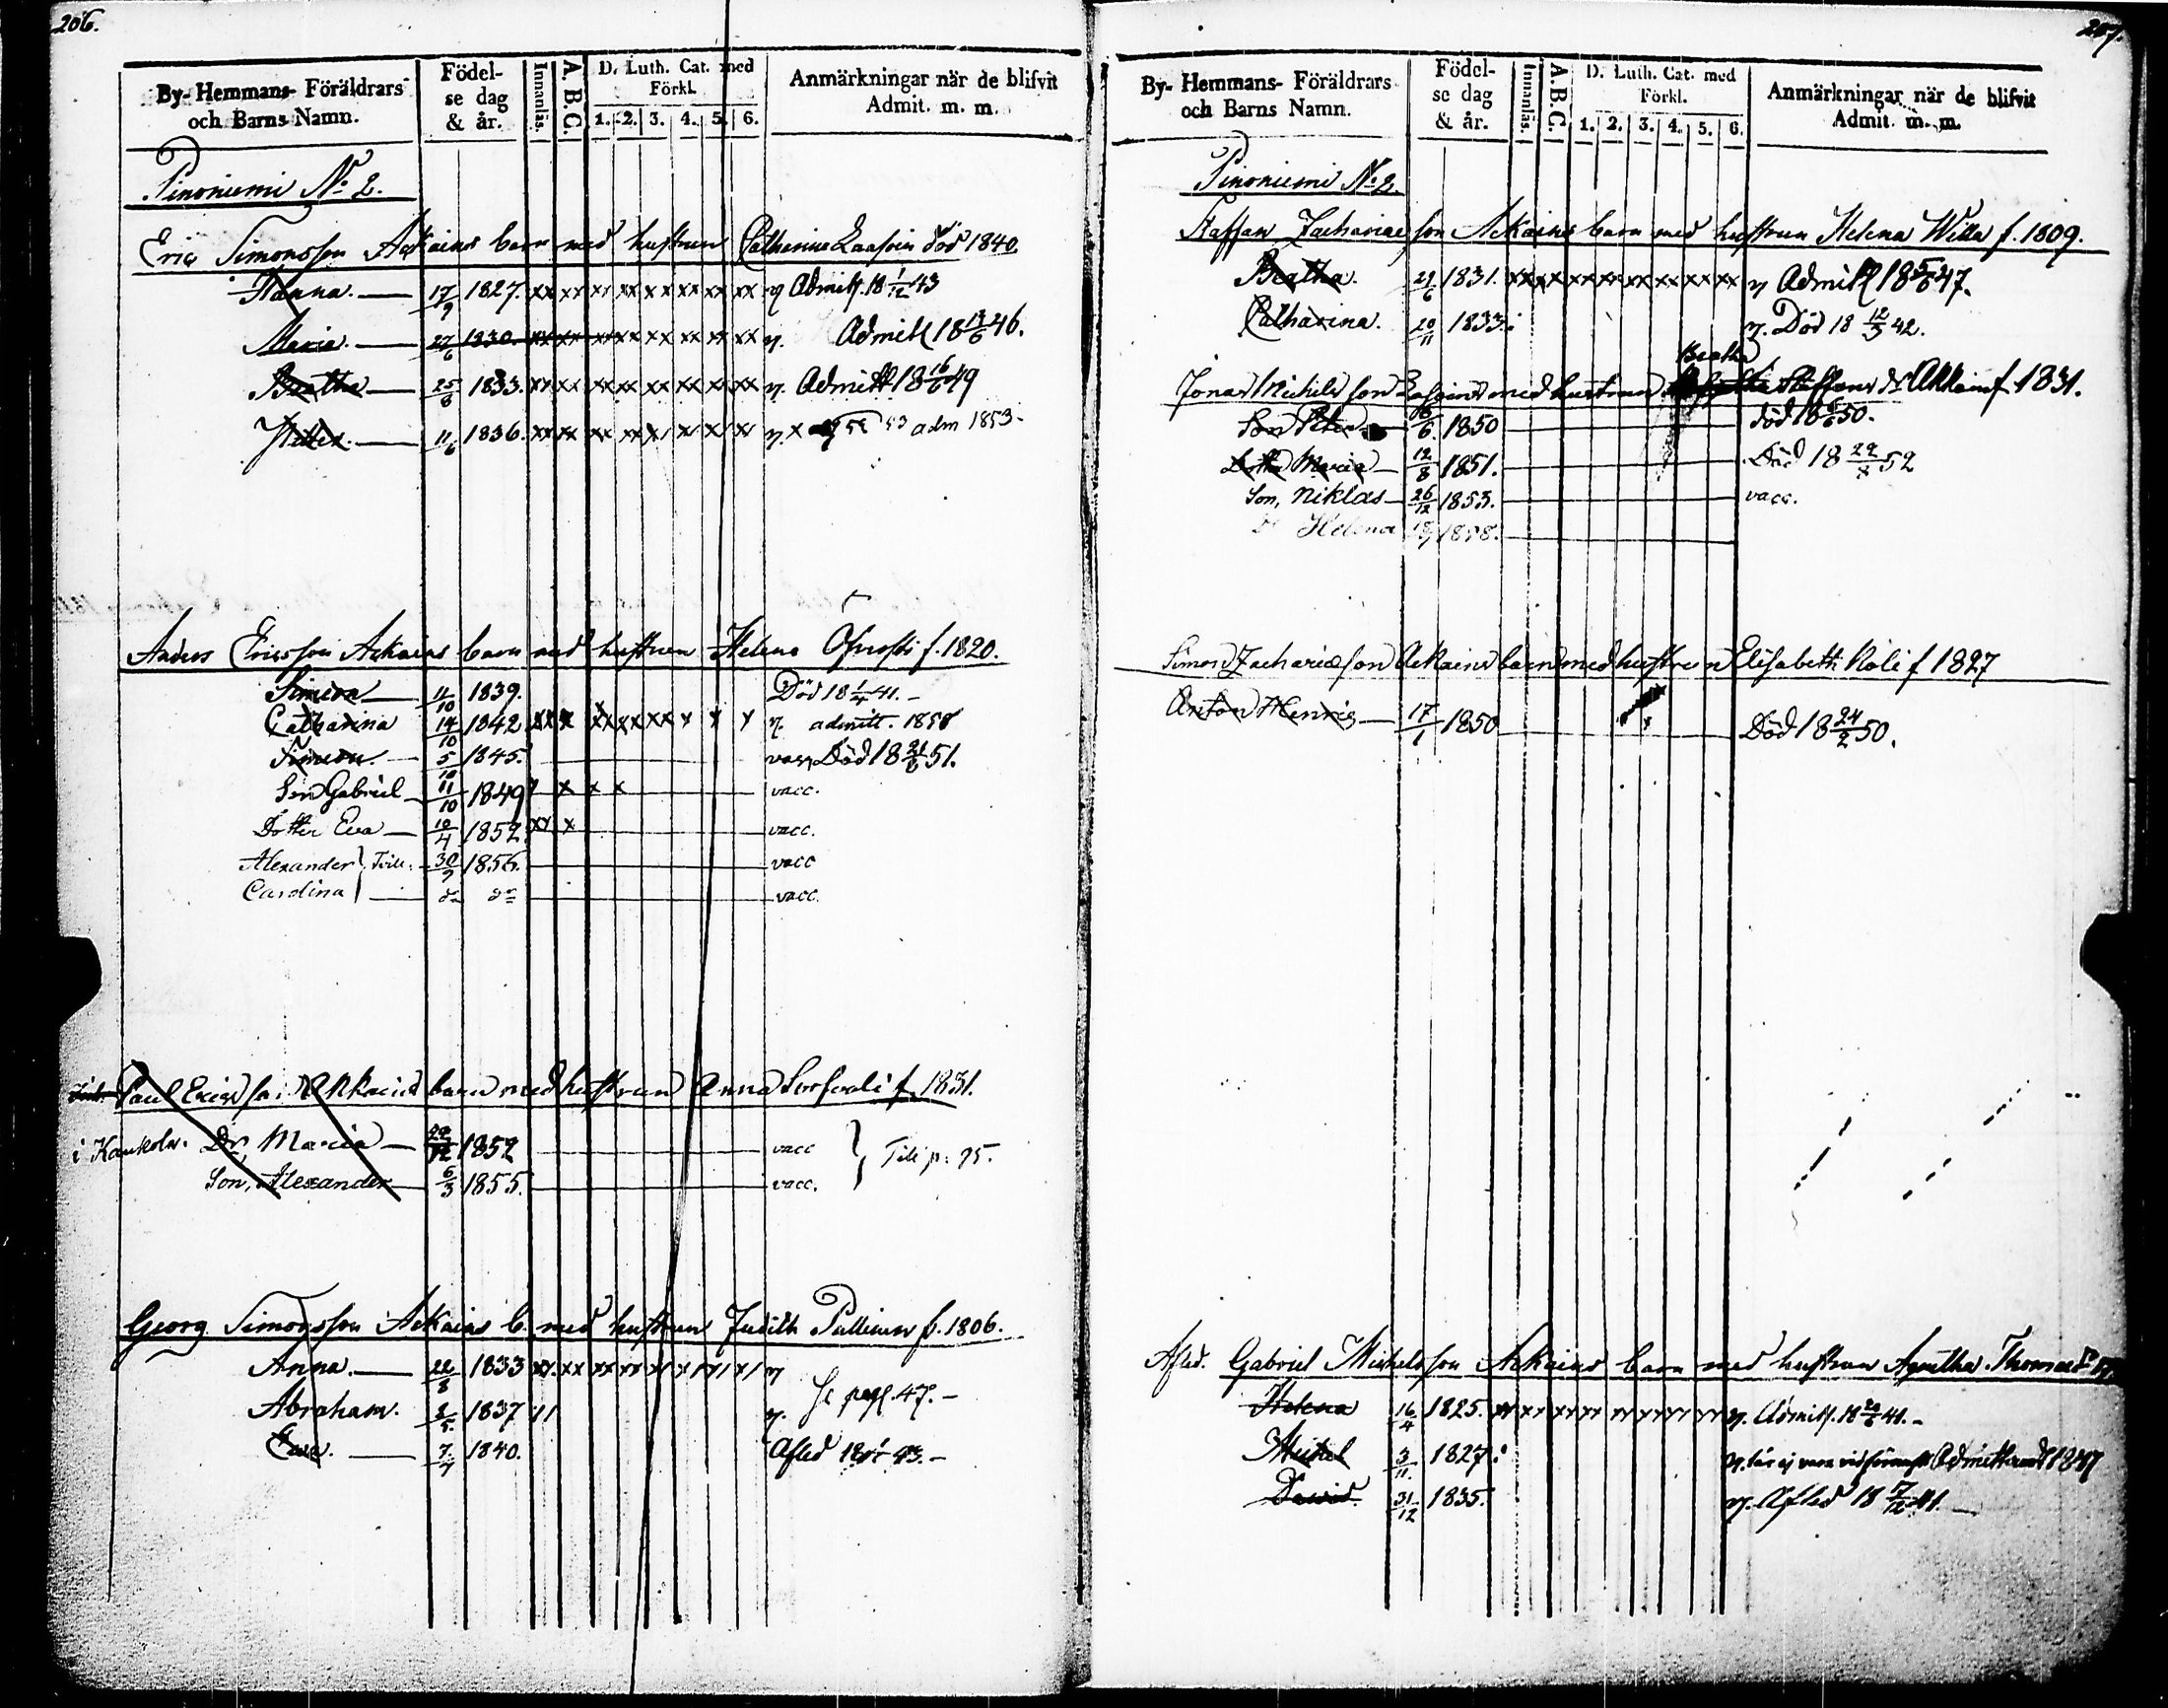 206.
By- Hemmans- Föräldrars och Barns Namn.
Födelse dag & år.
Innanläs.
A. B. C.
D. Luth. Cat. med Förkl.
1. 2. 3. 4. 5. 6.
Anmärkningar när de blifvit Admit. m. m.
Pinoniemi No 2.
Eric Simonsson Ackains barn med hustrun Catharina död 1840.
Hanna. 17/9 1827. xx xx xx xx xx xx xx xx Admitt. 18 1/12 43
Maria. 27/6 1830. xx xx xx xx xx xx xx xx Admitt 18 13/6 46.
Beatha 25/8 1833. xx xx xx xx xx xx xx xx Admitt 18 16/6 49
11/6 1836. adm 1853.
Anders Ericsson Ackains barn med hustrun Helena f. 1820.
Simeon 11/10 1839. Död 18 1/4 41.
Catharina 14/10 1842 admitt. 1858
Simeon 5/10 1845. Död 18 51.
Son Gabriel 11/10 1849 x x x vacc.
Dotter Eva 10/4 1852 xx x vacc.
Alexander } Tvill. 30/7 1856. vacc
Carolina do do vacc.
Paul Ericsson Ackains barn med hustrun Anna f. 1831.
i Kaukola. Dr, Maria 1852 vacc } Till p. 95.
Son, Alexander 6/3 1855. vacc.
Georg Simonsson Ackains b. med hustrun Judith Pullinen f. 1806.
Anna. 22/8 1833
Abraham. 1837 Se pag. 47.
7/7 1840. Afled
207.
By- Hemmans- Föräldrars och Barns Namn.
Födelse dag & år.
Innanläs.
A. B. C.
D. Luth. Cat. med Förkl.
1. 2. 3. 4. 5. 6.
Anmärkningar när de blifvit Admit. m. m.
Pinoniemi No 2.
Staffan Zachariaeson Ackains barn med hustrun Helena Willa f. 1809.
Beatha. 1831. Admitt 18 47.
Catharina. 20/11 1833. Död 18 12/3 42.
Beatha
Jonas Michelsson med hustrun Staffans dr Akkain f. 1831.
Son Peter 1850 död 18 50.
Dotter Maria 12/8 1851. Död 18 52
Son, Niklas 26/12 1853. vacc.
Helena
Simon Zachariaeson Ackains barn med hustrun Elisabeth f 1827
Anton Henric 17/1 1850 Död 18 24/2 50.
Afled. Gabriel Michelsson Ackains barn med hustrun Agatha Thomasdr
Helena 16/4 1825. Admitt. 18 41.
Michel 3/11 1827. Admitterad 1847
David. 31/12 1835. Afled 18 7/12 41.